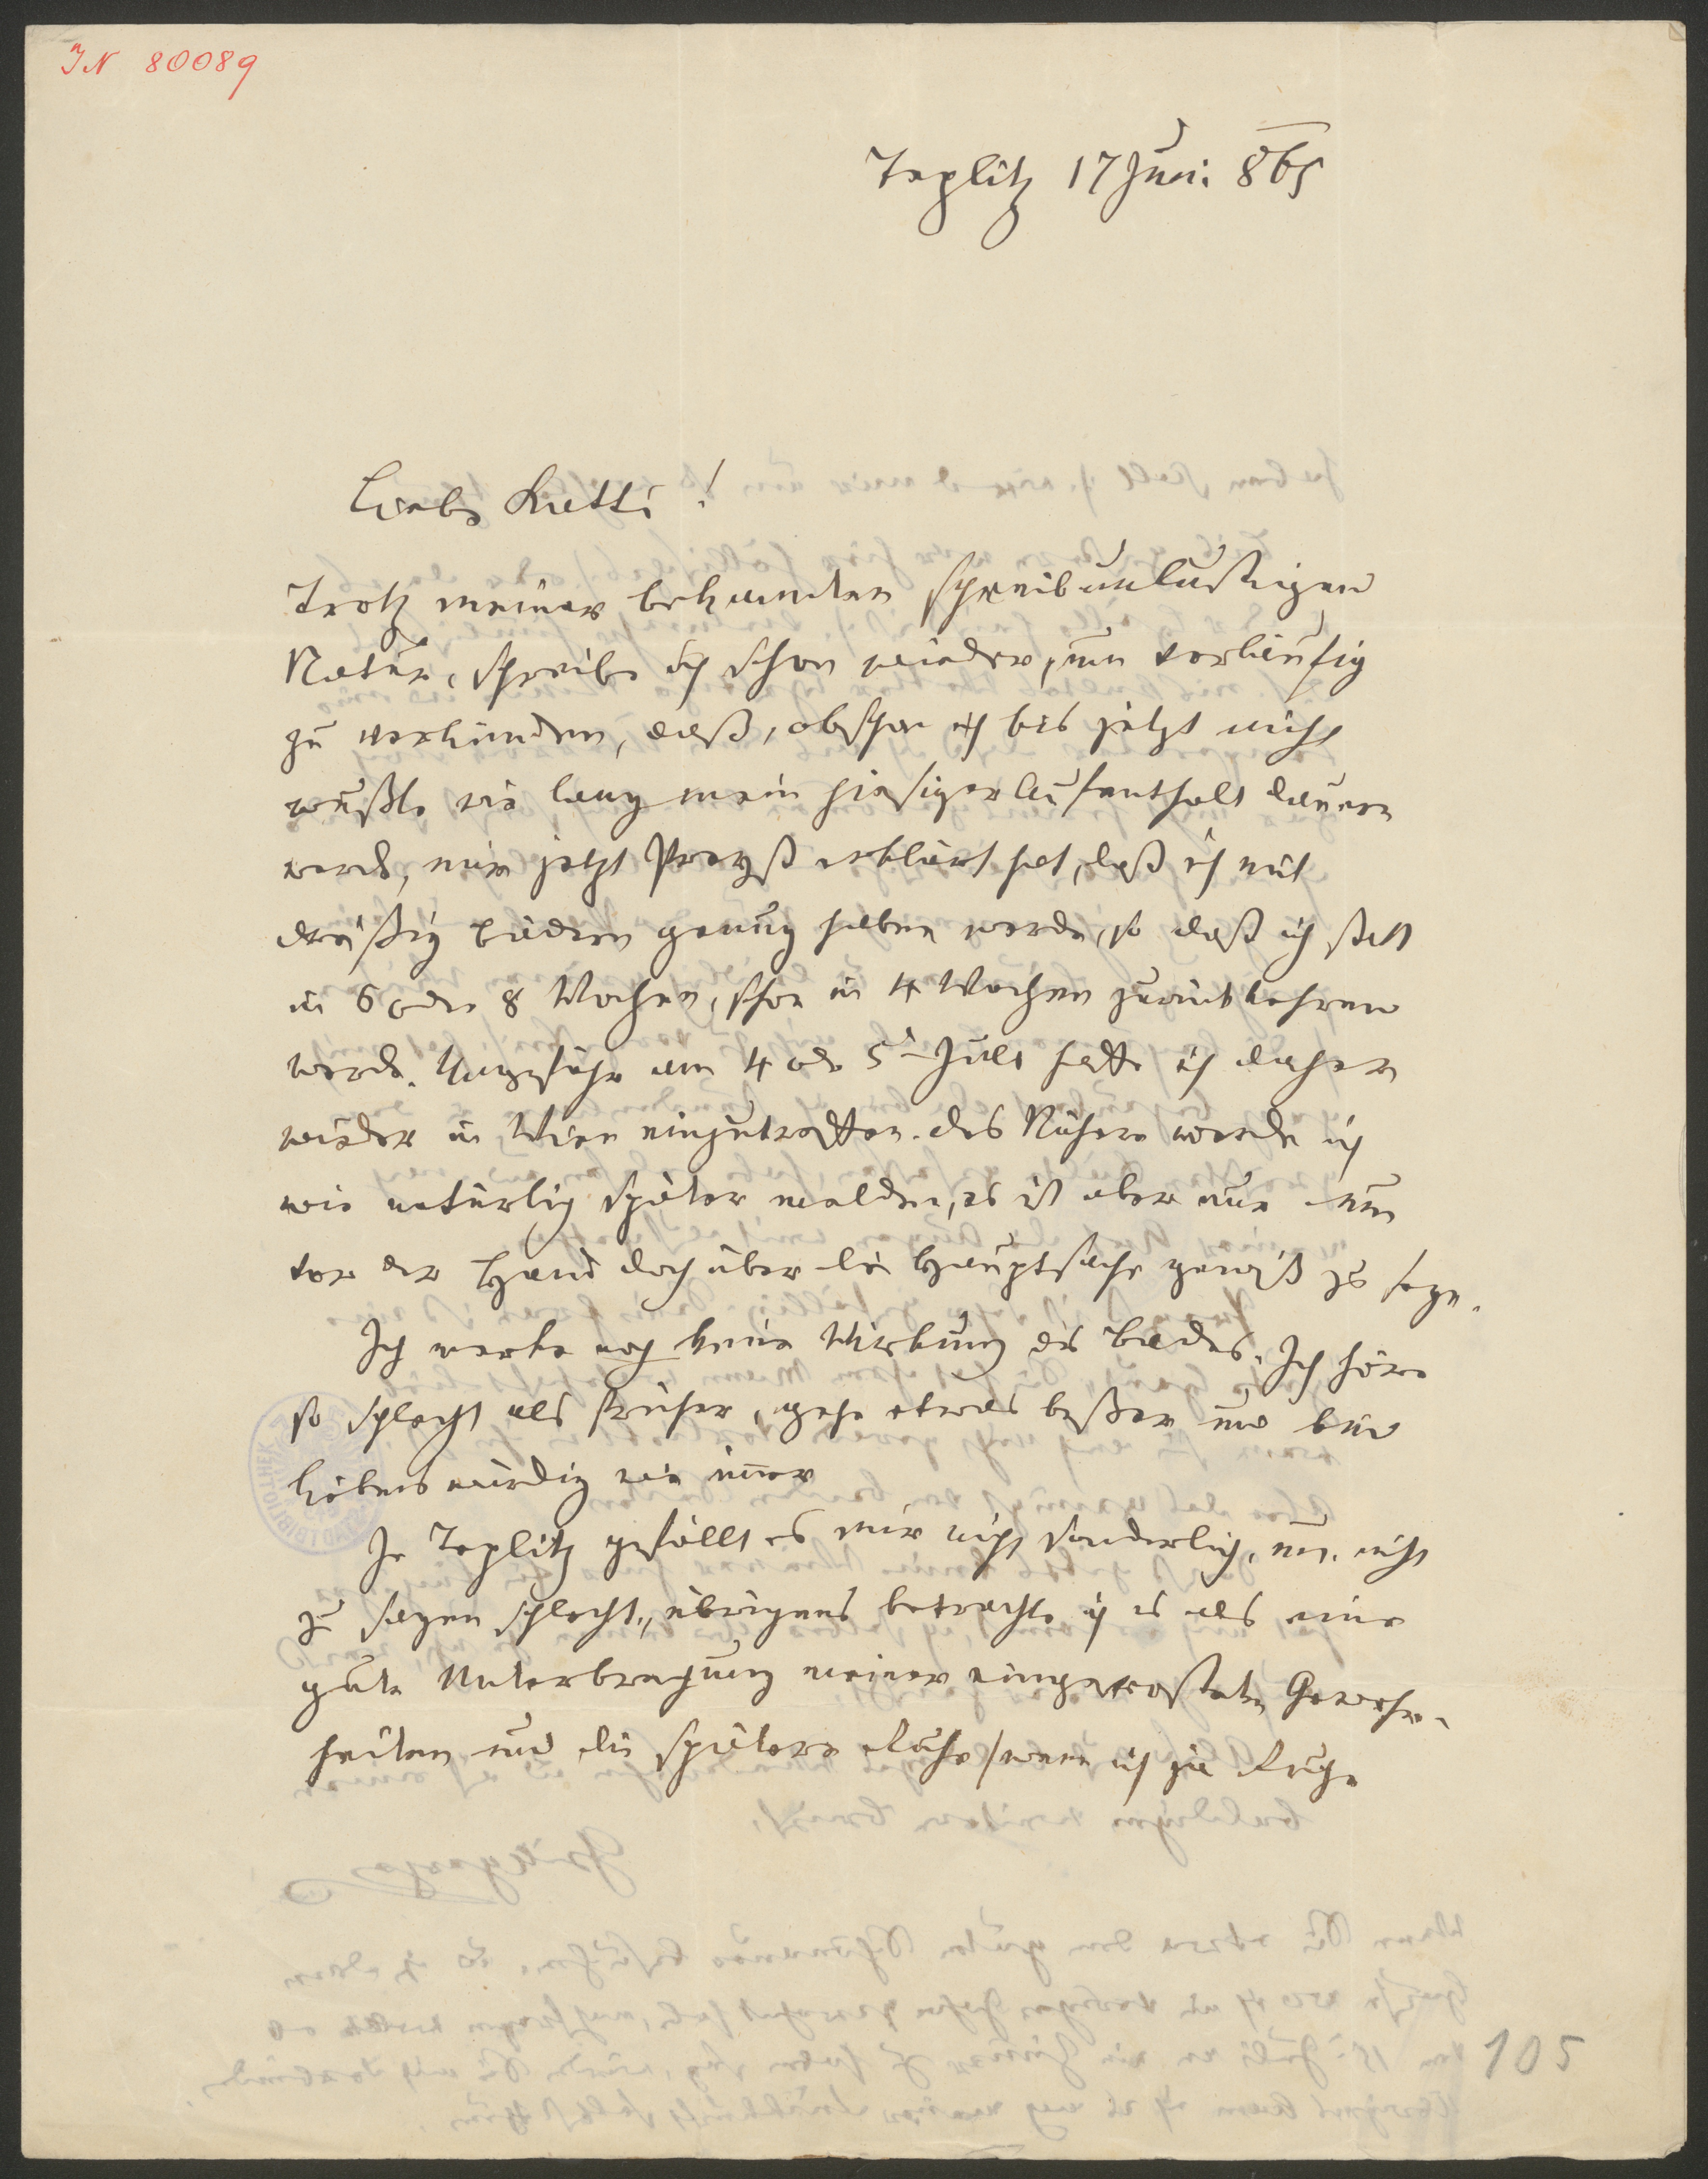 IN 80089
Teplitz 17 Juni 865
Liebe Katti!
Trotz meiner bekannten schreibunlustigen
Natur, schreibe ich schon wieder, um vorläufig
zu verkünden, daß, obschon ich bis jetzt nicht
wußte wie lang mein hiesiger Aufenthalt dauern
werde, mir jetzt erklärt hat, daß ich mit
dreißig Bädern genug haben werde, so daß ich statt
in 6 oder 8 Wochen, schon in 4 Wochen zurückkehren
werde. Ungefähr am 4 oder 5t Juli hoffe ich daher
wieder in Wien einzutreffen. Das Nähere werde ich
wie natürlich später melden, es ist aber nur um
vor der Hand doch über die Hauptsache gewiß zu seyn.
Ich merke noch keine Wirkung des Bades. Ich höre
so schlecht als früher, gehe etwas beßer und bin
liebenswürdig wie immer
In Teplitz gefällt es mir nicht sonderlich, um nicht
zu sagen schlecht, übrigens betrachte ich es als eine
gute Unterbrechung meiner eingerosteten Gewohn-
heiten und die spätere Ruhe /wenn ich sie
105